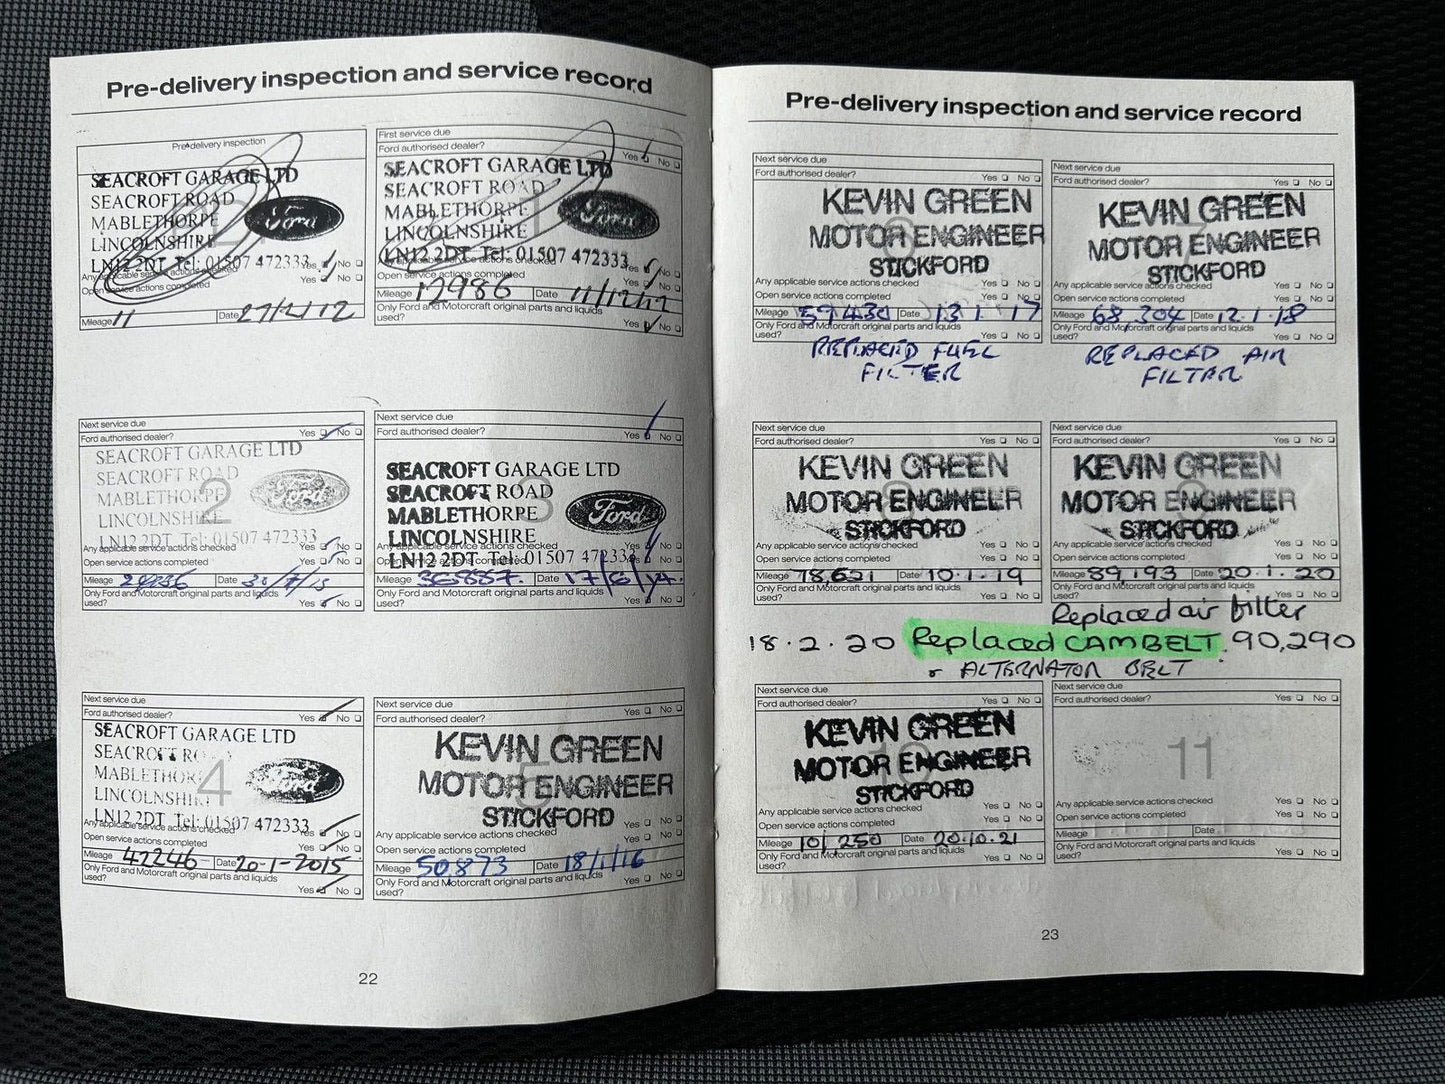 Pre-delivery inspection and service record
Pre-delivery inspection
SEACROFT GARAGE LTD
SEACROFT ROAD
MABLETHORPE
LINCOLNSHIRE
Ford
LN12 2DT Tel: 01507 472333
Yes No
Any applicable service actions checked
Open service actions completed
Yes No
Mileage 11 Date 27/4/12
First service due
Ford authorised dealer? Yes No
SEACROFT GARAGE LTD
SEACROFT ROAD
MABLETHORPE
LINCOLNSHIRE
Ford
1
LN12 2DT Tel: 01507 472333
Yes No
Open service actions completed Yes No
Mileage 12986 Date 11/12/12
Only Ford and Motorcraft original parts and liquids
used? Yes No
Next service due
Ford authorised dealer? Yes No
SEACROFT GARAGE LTD
SEACROFT ROAD
MABLETHORPE
LINCOLNSHIRE
Ford
2
LN12 2DT Tel: 01507 472333
Any applicable service actions checked Yes No
Open service actions completed Yes No
Mileage Date
Only Ford and Motorcraft original parts and liquids
used? Yes No
Next service due
Ford authorised dealer? Yes No
SEACROFT GARAGE LTD
SEACROFT ROAD
MABLETHORPE
LINCOLNSHIRE
Ford
3
LN12 2DT Tel: 01507 472333
Any applicable service actions checked Yes No
Open service actions completed Yes No
Mileage Date 17/6/14.
Only Ford and Motorcraft original parts and liquids
used? Yes No
Next service due
Ford authorised dealer? Yes No
SEACROFT GARAGE LTD
SEACROFT
MABLETHOR
LINCOLNSHI
Ford
4
LN12 2DT Tel: 01507 472333
Any applicable service actions checked Yes No
Open service actions completed Yes No
Mileage 42246 Date 20-1-2015
Only Ford and Motorcraft original parts and liquids
used? Yes No
Next service due
Ford authorised dealer? Yes No
KEVIN GREEN
MOTOR ENGINEER
STICKFORD
5
Any applicable service actions checked Yes No
Open service actions completed Yes No
Mileage 50873 Date 18/1/16
Only Ford and Motorcraft original parts and liquids
used? Yes No
22
Pre-delivery inspection and service record
Next service due
Ford authorised dealer? Yes No
KEVIN GREEN
MOTOR ENGINEER
STICKFORD
Any applicable service actions checked Yes No
Open service actions completed Yes No
Mileage 59430 Date 13.1.17
Only Ford and Motorcraft original parts and liquids
used? Yes No
REPLACED FUEL
FILTER
Next service due
Ford authorised dealer? Yes No
KEVIN GREEN
MOTOR ENGINEER
STICKFORD
7
Any applicable service actions checked Yes No
Open service actions completed Yes No
Mileage 68 304 Date 12.1.18
Only Ford and Motorcraft original parts and liquids
used? Yes No
REPLACED AIR
FILTER
Next service due
Ford authorised dealer? Yes No
KEVIN GREEN
MOTOR ENGINEER
STICKFORD
Any applicable service actions checked Yes No
Open service actions completed Yes No
Mileage 78,621 Date 10.1.19
Only Ford and Motorcraft original parts and liquids
used? Yes No
Next service due
Ford authorised dealer? Yes No
KEVIN GREEN
MOTOR ENGINEER
STICKFORD
Any applicable service actions checked Yes No
Open service actions completed Yes No
Mileage 89,193 Date 20.1.20
Only Ford and Motorcraft original parts and liquids
used? Yes No
Replaced air filter
18.2.20 Replaced CAMBELT. 90,290
& ALTERNATOR BELT
Next service due
Ford authorised dealer? Yes No
KEVIN GREEN
MOTOR ENGINEER
STICKFORD
10
Any applicable service actions checked Yes No
Open service actions completed Yes No
Mileage 101,250 Date 20.10.21
Only Ford and Motorcraft original parts and liquids
used? Yes No
Next service due
Ford authorised dealer? Yes No
11
Any applicable service actions checked Yes No
Open service actions completed Yes No
Mileage Date
Only Ford and Motorcraft original parts and liquids
used? Yes No
23